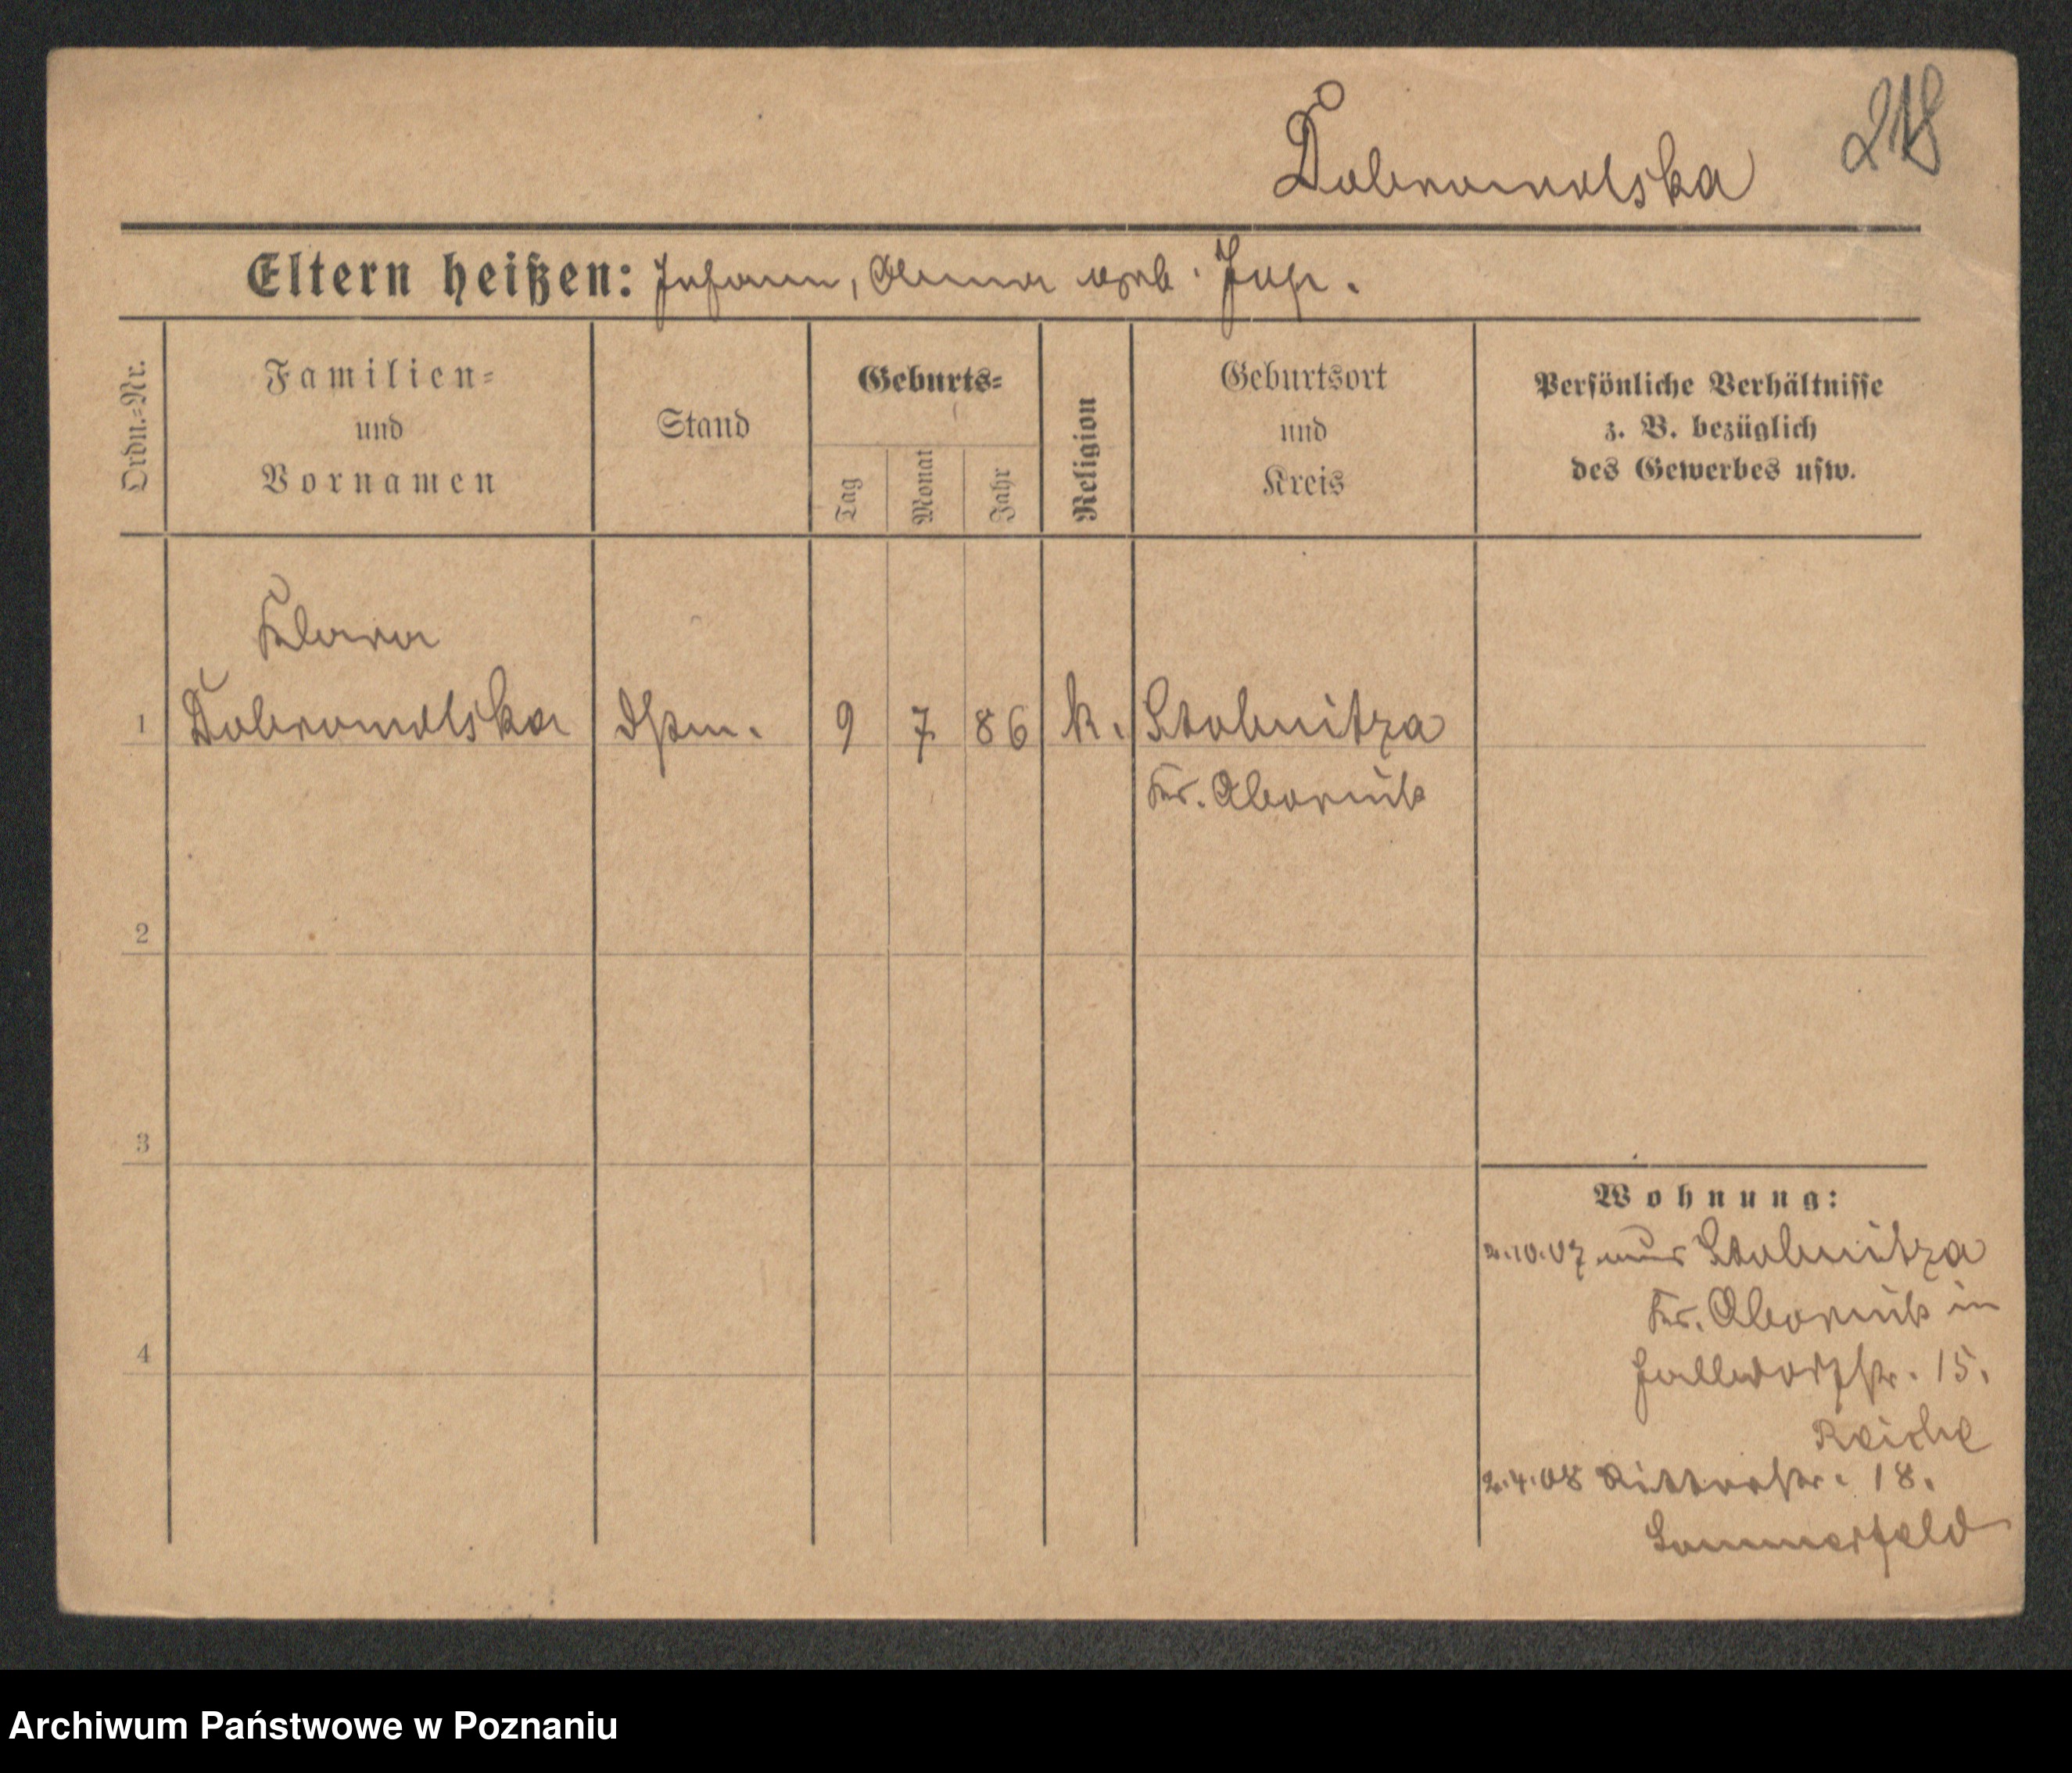 Dobrowolska 218
Eltern heißen: Johann, Anna geb.
Ordn.-Nr.
Familien-
und
Vornamen
Stand
Geburts-
Tag
Monat
Jahr
Religion
Geburtsort
und
Kreis
Persönliche Verhältnisse
z. B. bezüglich
des Gewerbes usw.
Klara
1 Dobrowolska 9 7 86 k. Stobnitza
Kr. Obornik
2
3
4
Wohnung:
2.10.07 aus Stobnitza
Kr. Obornik in
15.
Reiche
2.4.08 Ritterstr. 18.
Sommerfeld
Archiwum Państwowe w Poznaniu